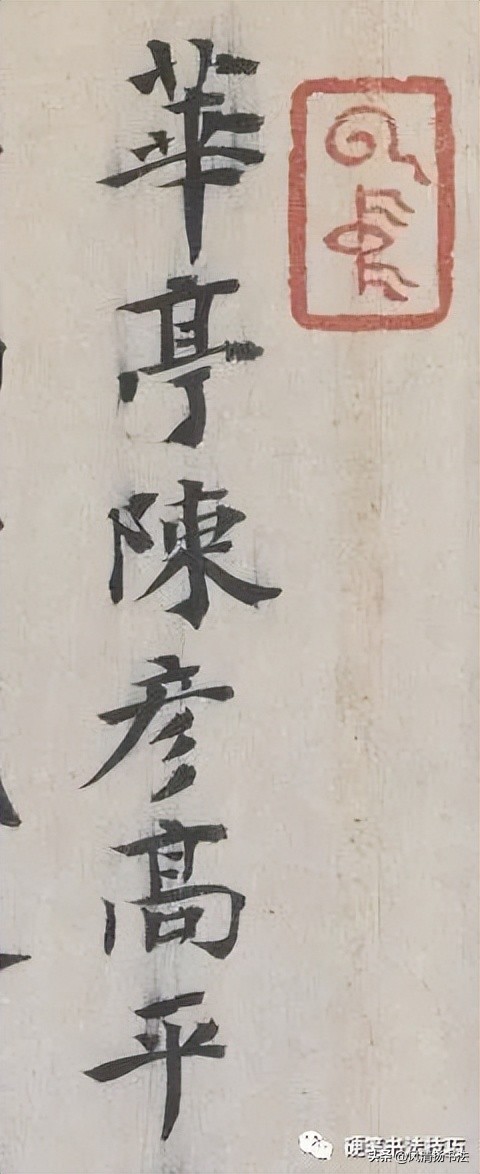 華亭陳彦髙平
硬笔书法技巧
头条@风清扬书法